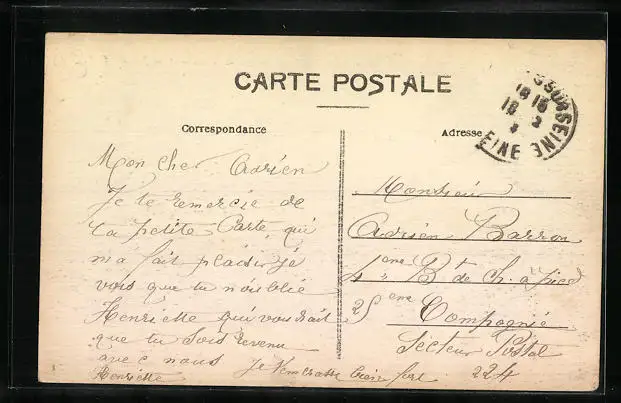 CARTE POSTALE
Correspondance
Mon cher Adrien
Je te remercie de
ta petite Carte, qui
m'a fait plaisir je
vois que tu n'oublie
Henriette qui voudrait
que tu sois revenu
avec nous Je t'embrasse bien fort
Henriette
Adresse
Monsieur
Adrien Barron
4eme Bt de Ch. à Pied
25eme Compagnie
Secteur Postal
224
SSURSEINE
18 15
18 2
EINE